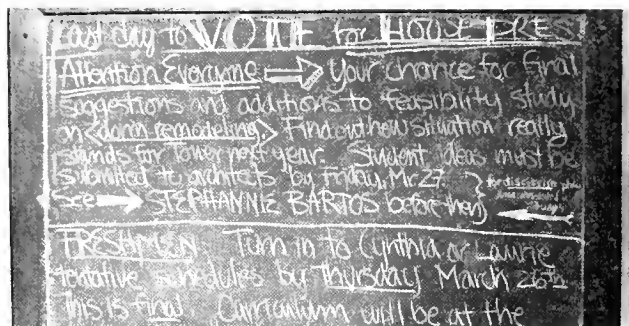 Last day to VOTE for HOUSE PRES
Attention Everyone → Your chance for final
suggestions and additions to feasibility study
on <dorm remodeling.> Find out how situation really
stands for tower next year. Student ideas must be
submitted to architects by Friday, Mr. 27. for discussion
See → STEPHANNIE BARTOS before then
FRESHMEN Turn in to Cynthia or Laurie
tentative schedules by Thursday March 26th
This is final Curriculum will be at the